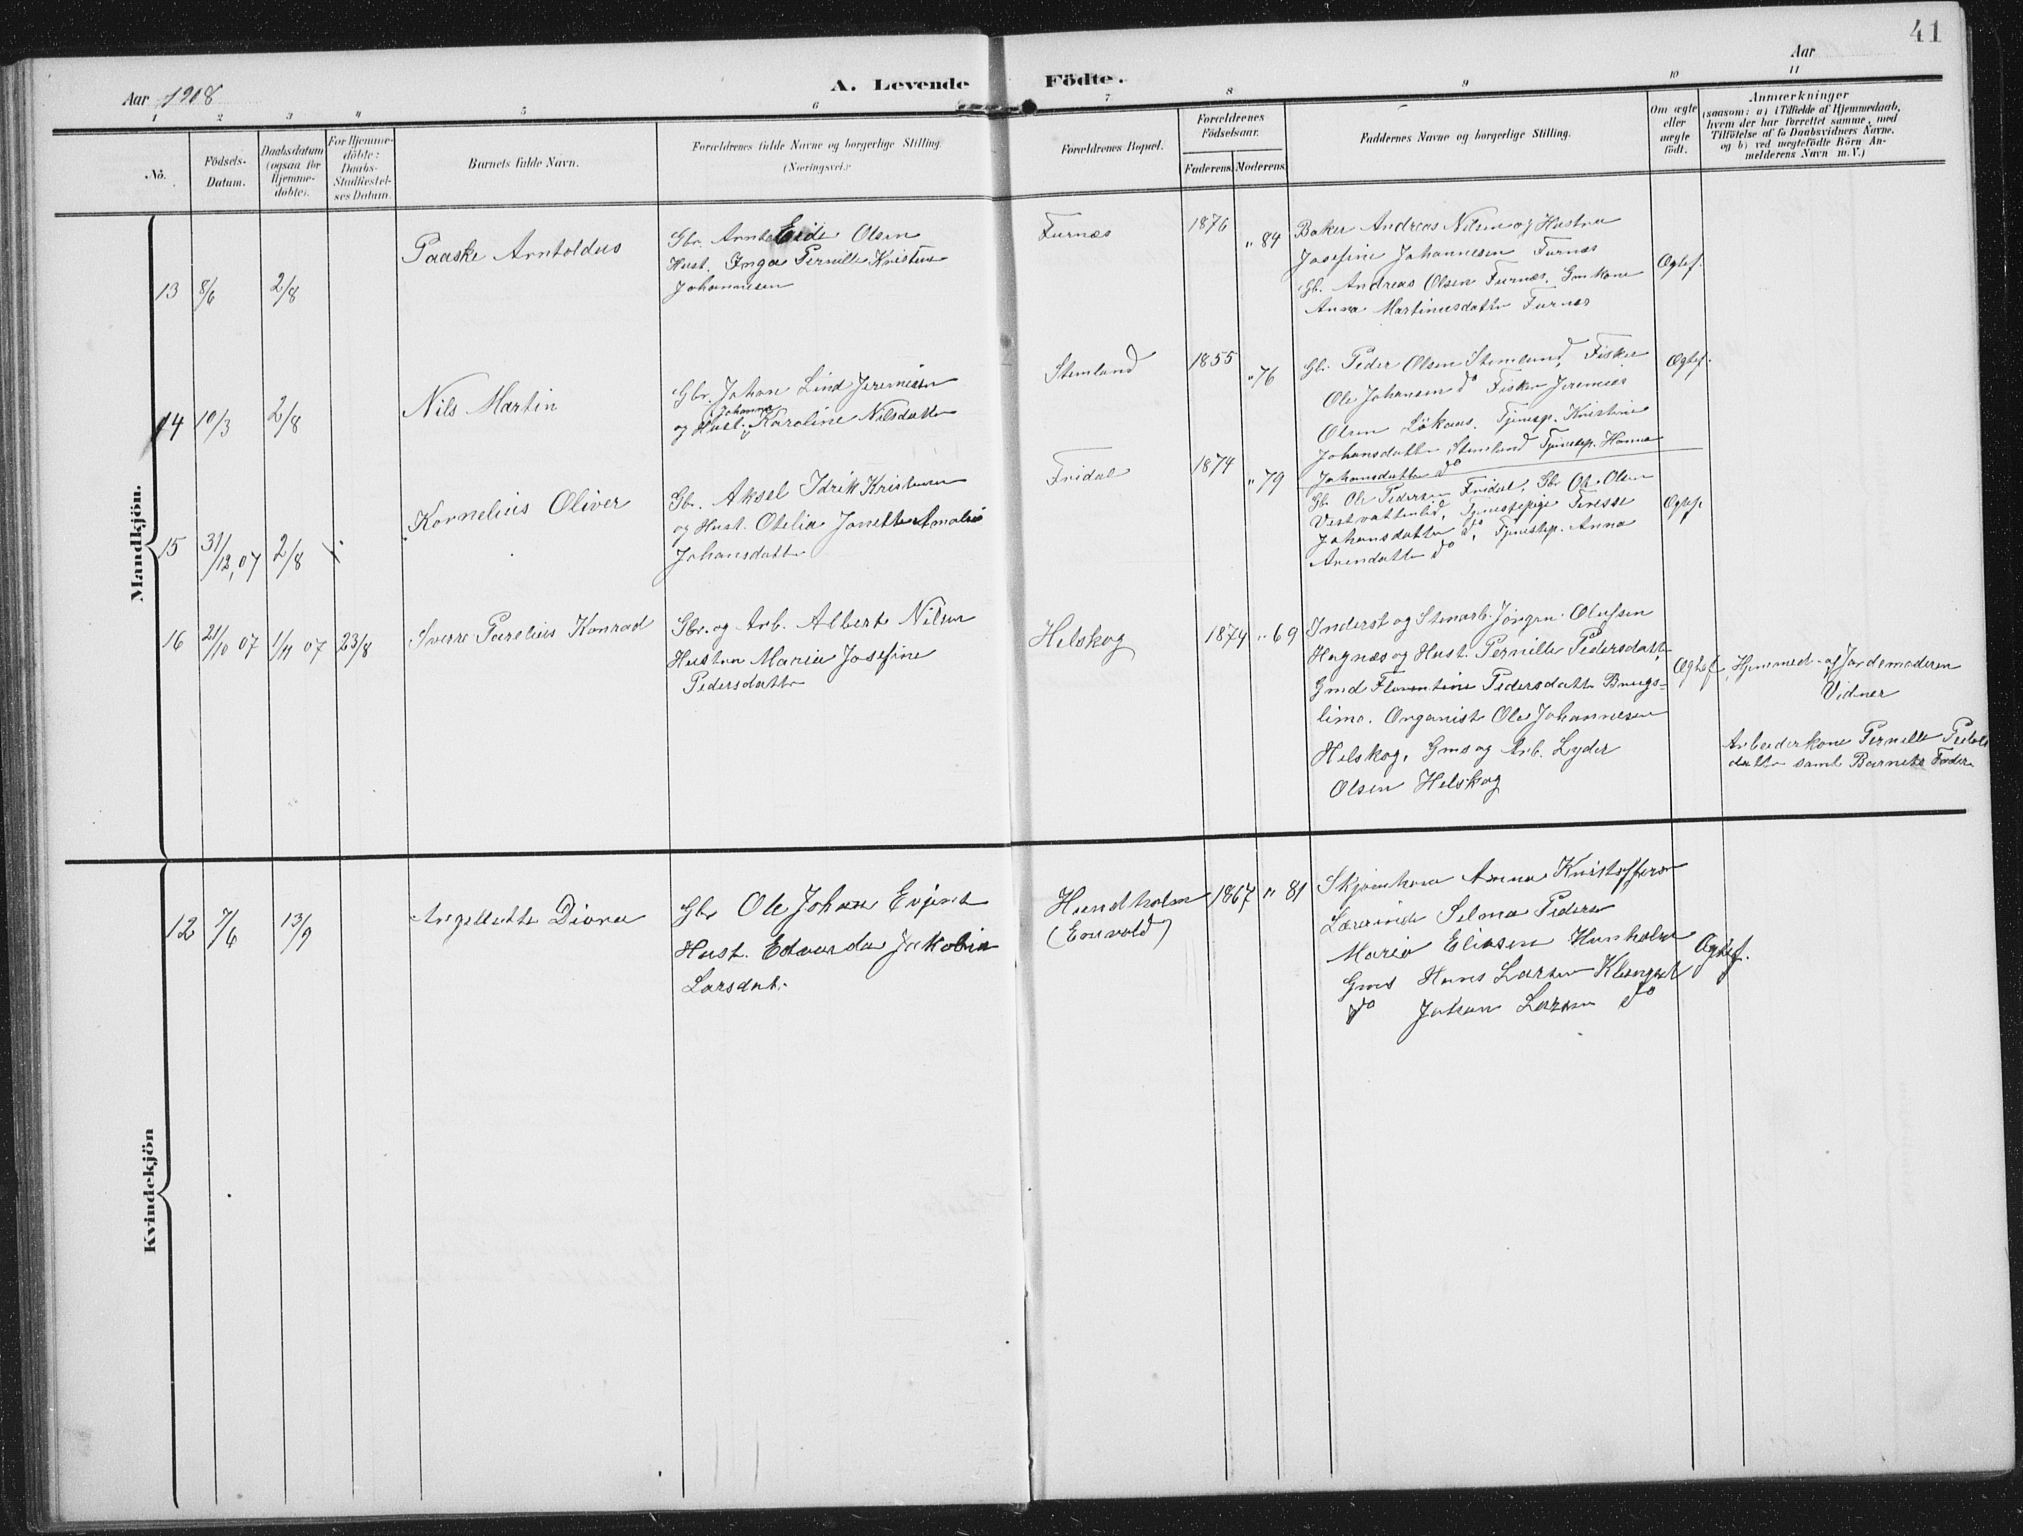 41
Aar 1908
A. Levende Födte.
Aar
1 2 3 4 5 6 7 8 9 10 11
No.
Födsels-
Datum.
Daabsdatum
(ogsaa for
Hjemme-
döbte).
For Hjemme-
döbte:
Daabs-
Stadfæstel-
ses Datum.
Barnets fulde Navn.
Forældrenes fulde Navne og borgerlige Stilling.
(Næringsvei.)
Forældrenes Bopæl.
Forældrenes
Födselsaar.
Faderens. Moderens.
Faddernes Navne og borgerlige Stilling.
Om ægte
eller
uægte
födt.
Anmærkninger
(saasom: a) i Tilfælde af Hjemmedaab,
hvem der har forrettet samme, med
Tilföielse af to Daabsvidners Navne,
og b) ved uægtefödte Börn An-
melderens Navn m. V.)
Mandkjön.
13 8/6 2/8
Paaske Arntoldus
Gbr. Eide Olsen
Hust. Inga Pernille Kristine
Johannesen
Furnæs
1876 " 84
Baker Andreas Nilsen og Hustru
Josefine Johannesen Furnæs
Gb. Andreas Olsen Furnæs, Gmkone
Anna Martinusdatter Furnæs
Ogtef.
14 10/3 2/8
Nils Martin
Gbr. Johan Lind Jeremisen
Johanna
og Hust. Karoline Nilsdatter
Stemland
1855 " 76
Gbr. Peder Olsen Stemland, Fisker
Ole Johansen do Fisker Jeremias
Olsen Løkaas. Tjenestp. Kristine
Johansdatter Stemland Tjenestp. Hanna
Johansdatter do
Ogtef.
15 31/12,07 2/8
Kornelius Oliver
Gbr. Aksel Idrik Kristensen
og Hust. Otelia Jonette Amalie
Johansdatter
Fridal
1874 " 79
Gb. Ole Pedersen Fridal, Gbr Ole Olsen
Vestvattenlid, Tjenestepige Teresse
Johansdatter do, Tjenestep. Anna
Arendatter do
Ogtef.
16 21/10 07 1/11 07 23/8
Sverre Parelius Konrad
Gbr. og Arb. Albert Nilsen
Hustru Maria Josefine
Pedersdatter
Helskog
1874 " 69
Inderst og Stenarb. Jørgen Olufsen
Hagnæs og Hust. Pernille Pedersdatt.
Gmd Florentine Pedersdatter Brugs-
limo. Organist Ole Johannesen
Helskog, Gms og Arb. Lyder
Olsen Helskog
Ogtef.
Hjemmed. af Jordemoderen
Vidner
Arbeiderkone Pernille
datter samt Barnets Fader
Kvindekjön
12 7/6 13/9
Angelette Diora
Gbr Ole Johan Evjent
Hust. Edvarda Jakobin
Larsdat.
Hundholm
(Enevold)
1867 " 81
Anna Kristoffersen
Lærerinde Selma Peders
Marie Eliasen Hunholm
Gms Hans Larsen Klengsel
do Johan Larsen do
Ogtef.